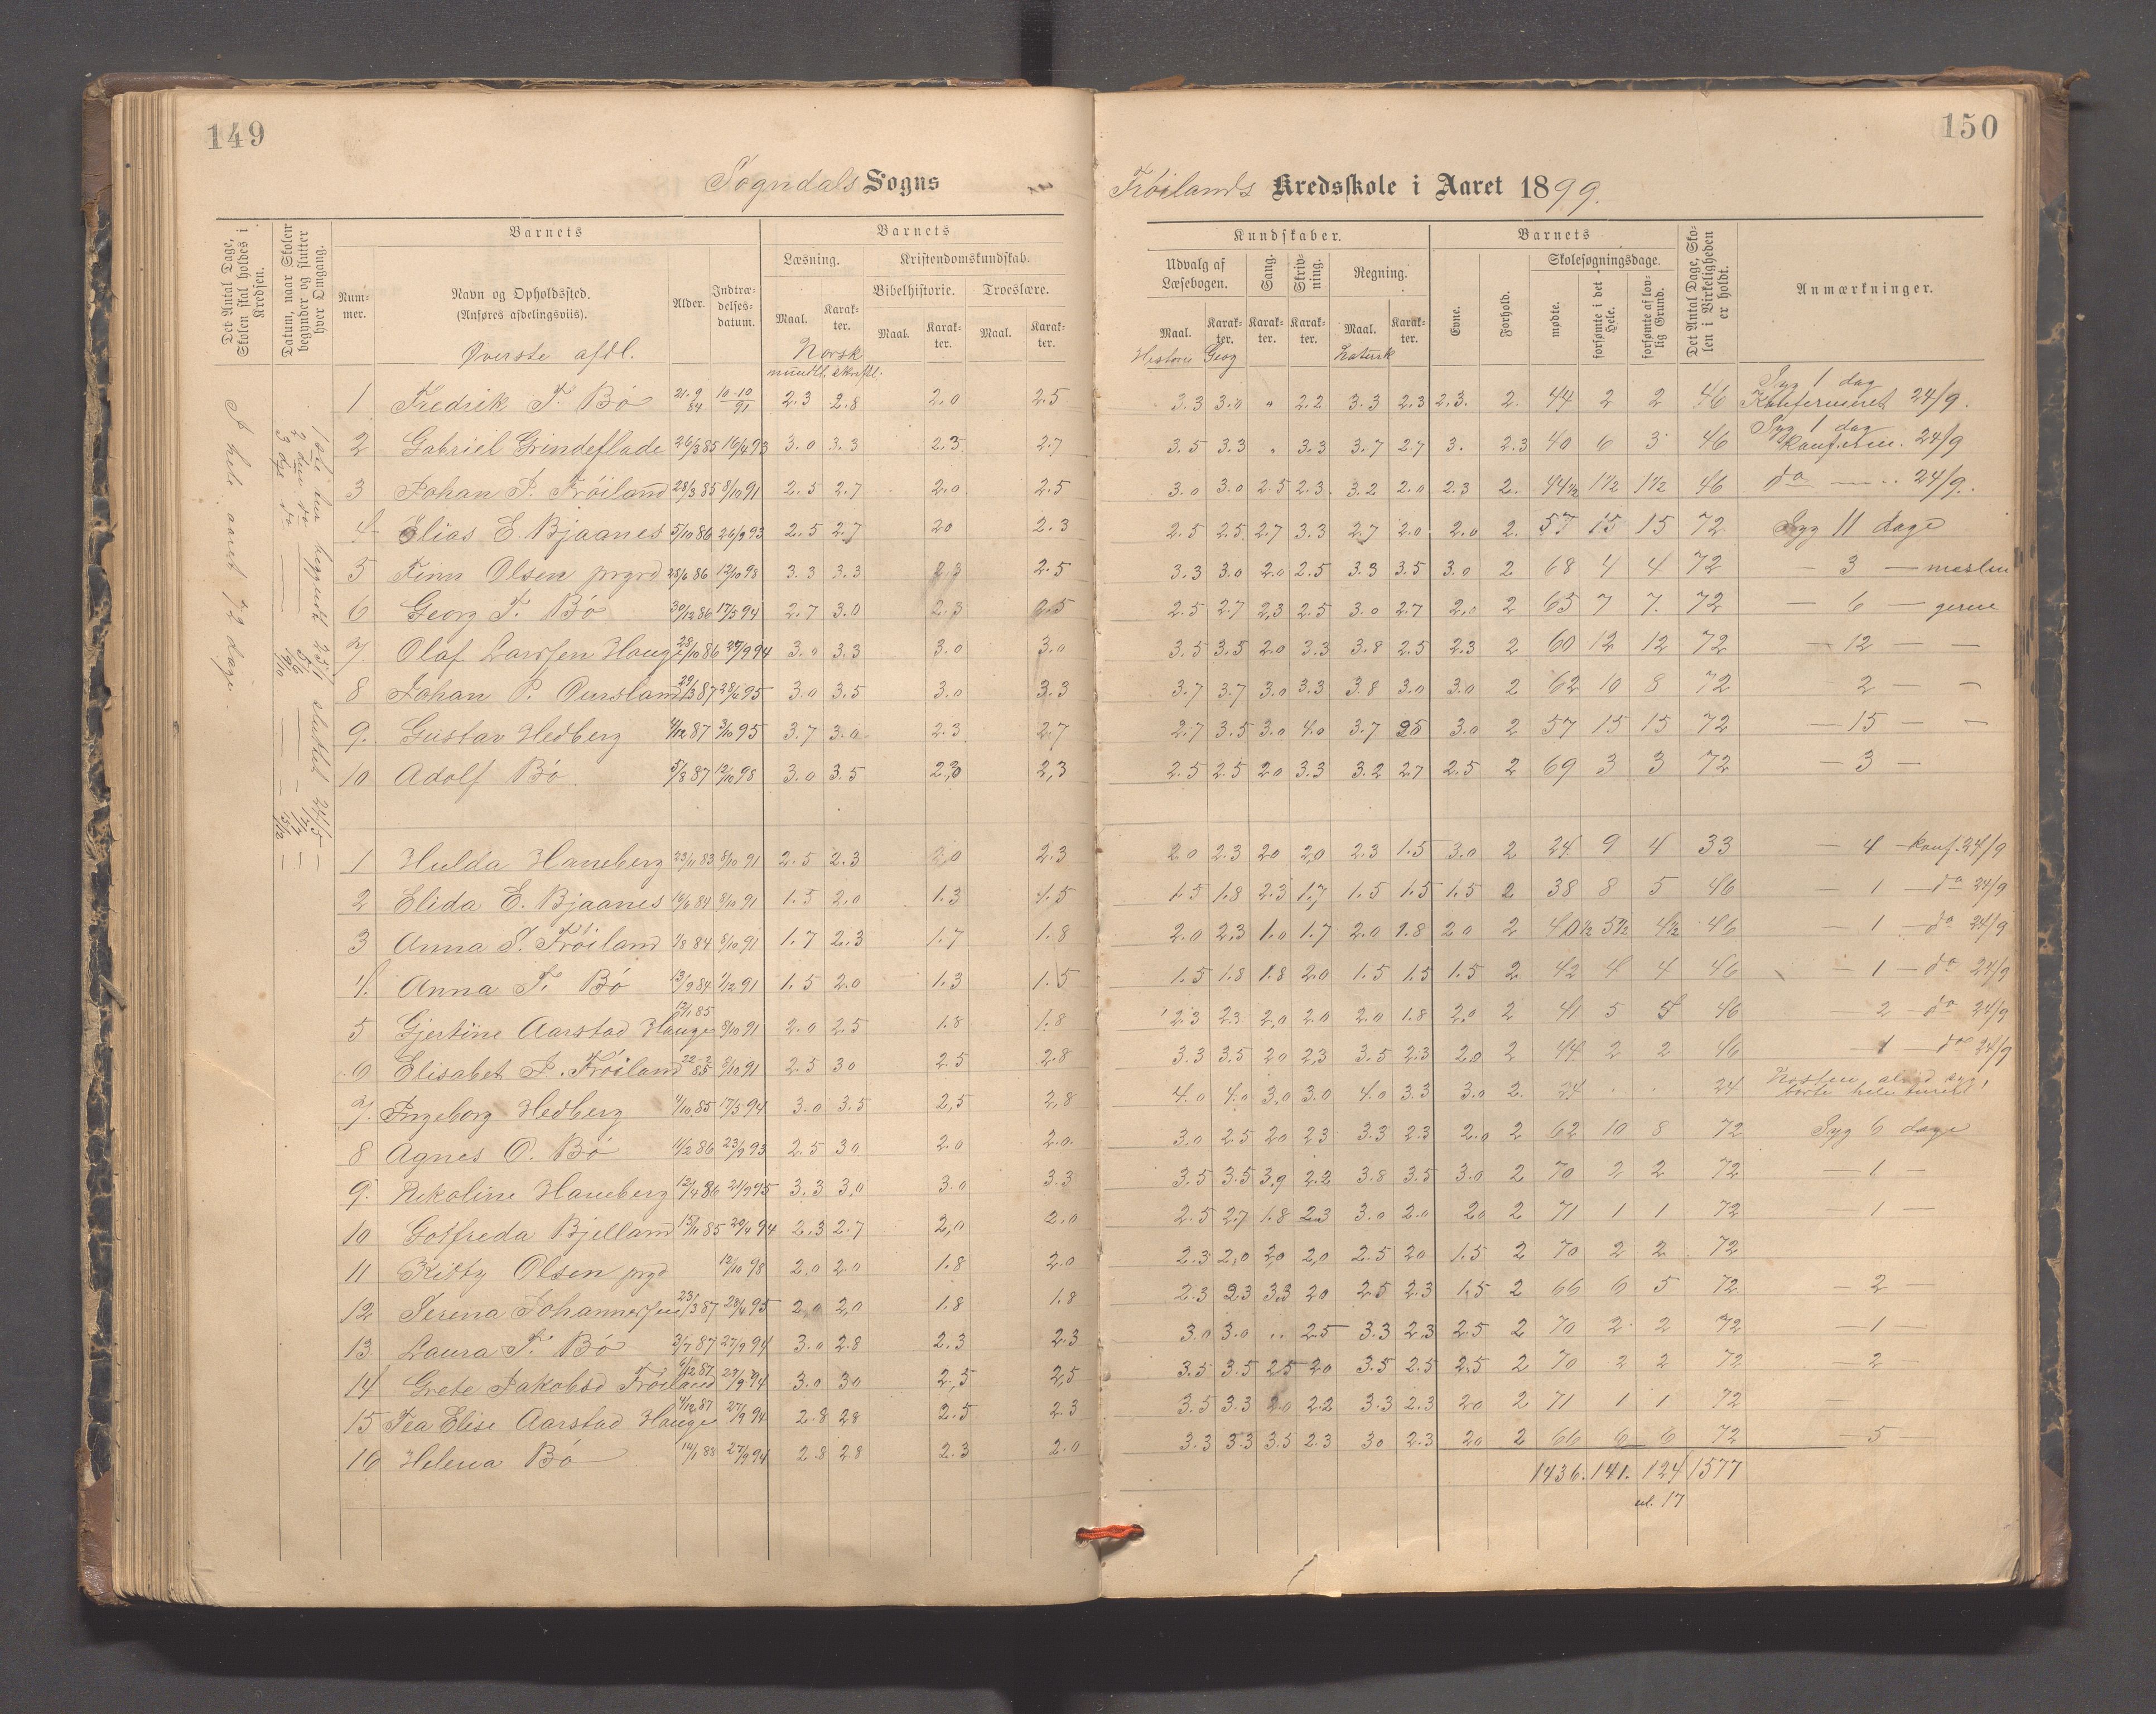 149
150
Sogndals Sogns
Frøilands Kredsskole i Aaret 1899.
Det Antal Dage, Skolen skal holdes i Kredsen.
Datum, naar Skolen begynder og slutter hver Omgang.
Barnets
Num-
mer.
Navn og Opholdssted.
(Anføres afdelingsviis).
Øverste afdl.
Alder.
Indtræ-
delses-
datum.
Barnets
Læsning.
Kristendomskundskab.
Bibelhistorie.
Troeslære.
Maal.
Karak-
ter.
Maal.
Karak-
ter.
Maal.
Karak-
ter.
Norsk
mundtl. skriftl.
Kundskaber.
Udvalg af
Læsebogen.
Sang.
Skriv-
ning.
Regning.
Maal.
Karak-
ter.
Karak-
ter.
Karak-
ter.
Maal.
Karak-
ter.
Historie Geog
Naturk
Barnets
Evne.
Forhold.
Skolesøgningsdage.
mødte.
forsømte i det Hele.
forsømte af lov-
lig Grund.
Det Antal Dage, Sko-
len i Virkeligheden
er holdt.
Anmærkninger.
I hele aaret 72 dage.
1 Fredrik T. Bø 21.9 84 10-10 91 2.3 2.8 2.0 2.5 3.3 3.0 " 2.2 3.3 2.3 2.3. 2. 44 2 2 46 Syg 1 dag Konfirmeret 24/9.
2 Gabriel Grindeflade 26/3 85 16/4 93 3.0 3.3 2.3. 2.7 3.5 3.3 " 3.3 3.7 2.7 3. 2.3 40 6 3 46 Syg 1 dag Konfirm. 24/9
3 Johan P. Frøiland 28/3 85 8/10 91 2.5 2.7 2.0 2.5 3.0 3.0 2.5 2.3. 3.2 2.0 2.3 2. 44½ 1½ 1½ 46 do 24/9.
4 Elias E. Bjaanes 5/10 86 26/9 93 2.5 2.7 20 2.3 2.5 2.5 2.7 3.3 2.7 2.0 2.0 2. 57 15 15 72 Syg 11 dage
5 Finn Olsen prgrd 28/6 86 12/10 98 3.3 3.3 2,3 2.5 3.3 3.0 2.0 2.5 3.3 3.5 3.0 2 68 4 4 72 — 3 —
6 Georg T. Bø 30/12 86 17/5 94 2.7 3.0 2.3 2.5 2.5 2.7 2,3 2.5 3.0 2.7 2.0 2 65 7 7. 72 — 6 —
7. Olaf Larssen Hauge 28/10 86 27/9 94 3.0 3.3 3.0 3.0 3.5 3.5 2.0 3.3 3.8 2.5 2.3 2 60 12 12 72 — 12 — —
8 Johan P. 29/3 87 28/4 95 3.0 3.5 3.0 3.3 3.7 3.7 3.0 3.3 3.8 3.0 3.0 2 62 10 8 72 — 2 — —
9. Gustav Hedberg 4/12 87 3/10 95 3.7 3.0 2.3 2.7 2.7 3.5 3.0 4.0 3.7 25 3.0 2 57 15 15 72 — 15 — —
10 Adolf Bø 5/8 87 12/10 98 3.0 3.5 2,0 2,3 2.5 2.5 20 3.3 3.2 2.7 2.5 2 69 3 3 72 — 3 —
1 Hulda Haneberg 23/11 83 8/10 91 2.5 2.3 2,0 2.3 20 2.3 20 2,0 2.3 1.5 3.0 2 24 9 4 33 — 4 — konf. 24/9
2 Elida E. Bjaanes 16/6 84 8/10 91 1.5 2.0 1.3 1.5 1.5 1.8 2.3 1.7 1.5 1.5 1.5 2 38 8 5 46 — 1 — do 24/9
3 Anna S. Frøiland 1/8 84 8/10 91 1.7 2.3 1.7 1.8 2.0 2,3 1.0 1.7 2.0 1.8 20 2 40½ 5½ 4½ 46 — 1 — do 24/9
4. Anna T. Bø 13/9 84 1/12 91 1.5 2.0 1.3 1.5 1.5 1.8 1.8 2.0 1.5 1.5 1.5 2 42 4 4 46 — 1 — do 24/9
5 Gjertine Aarstad Hauge 12/1 85 8/10 91 2.0 2.5 1.8 1.8 2.3 2.3 2,0 2.0 2.0 1.8 2.0 2 41 5 5 46 — 2 — do 24/9
6 Elisabet P. Frøiland 22-2 85 8/10 91 2.5 30 2.5 2.8 3.3 3.5 20 2.3 3.5 2.3 2.0 2 44 2 2 46 — 1 — do 24/9
7. Ingeborg Hedberg 4/10 85 17/5 94 3.0 3.5 2,5 2,8 4.0 4.0 3,0 3.0 4.0 3.3 3.0 2. 24 . . 24
8 Agnes O. Bø 11/2 86 23/9 93 2.5 30 2.0 2.0 3.0 2.5 20 23 3.3 2.3 2.0 2 62 10 8 72 Syg 6 dage
9. Nekoline Haneberg 12/4 86 21/9 95 3.3 3,0 3.0 3.3 3.5 3.5 3,9 2.2 3.8 3.5 3.0 2 70 2 2 72 — 1 —
10 Gotfreda Bjelland 15/11 85 20/4 94 2.3 2.7 2,0 2.0 2.5 2.7 1.8 2.3 3.0 2.0 20 2 71 1 1 72 — 1 —
11 Kitty Olsen prgd 12/10 98 2.0 2.0 1.8 2.0 2.3 2,0 2,0 2,0 2.5 20 1.5 2 70 2 2 72
12 Serena Johannessen 23/3 87 28/4 95 2,0 2,0 1.8 1.8 2.3 2.3 3.3 20 2.5 2.3 1.5 2 66 6 5 72 — 2 —
13 Laura T. Bø 3/7 87 27/9 94 3.0 2.8 2.3 2.3 3.0 3.0 .. 2.5 3.3 2.3 2.5 2 70 2 2 72 — 1 —
14 Grete Jakobsd Frøiland 6/12 87 27/9 94 3.0 30 2,5 2,5 3.5 3.5 2.5 20 3.5 2.5 2.5 2 70 2 2 72 — 2
15 Tea Elise Aarstad Hauge 4/12 87 27/9 94 2.8 28 2.5 2.3 3.5 3.3 2.0 2.2 3.3 2.3 20 2 71 1 1 72 —
16 Helena Bø 14/1 88 27/9 94 2.8 28 2.3 2.0 3.3 3.3 3.5 2.3 30 2.3 20 2 66 6 6 72 — 5 —
1436. 141. 124 1577
ul. 17